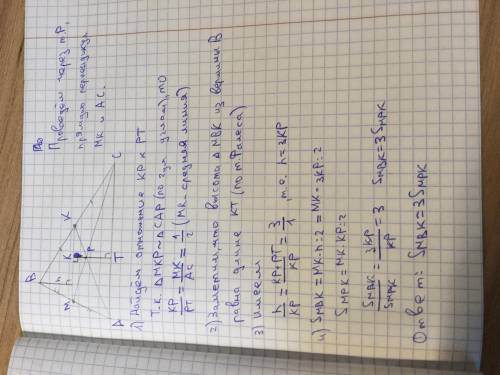 Проведём через т.P,
прямую перпендикул.
MK и AC.
B
h
M
K
K
P
A
T
C
1) Найдем отношение KP к PT
Т.к. △MKP~△CAP (по 2-ум углам), то
KP/PT = MK/AC = 1/2 (MK-средняя линия)
2) Заметим, что высота △MBK из вершины B
равна длине KT (по т.Фалеса)
3) Имеем
h/KP = KP+PT/KP = 3/1, т.е. h=3KP
4) S MBK = MK·h:2 = MK·3KP:2
S MPK = MK·KP:2
S MBK/S MPK = 3KP/KP = 3 S MBK = 3S MPK
Ответ: S MBK = 3S MPK